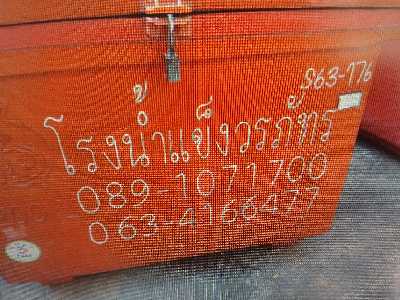 S63-176
โรงน้ำแข็งวรภัทร
089-1071700
063-4166477